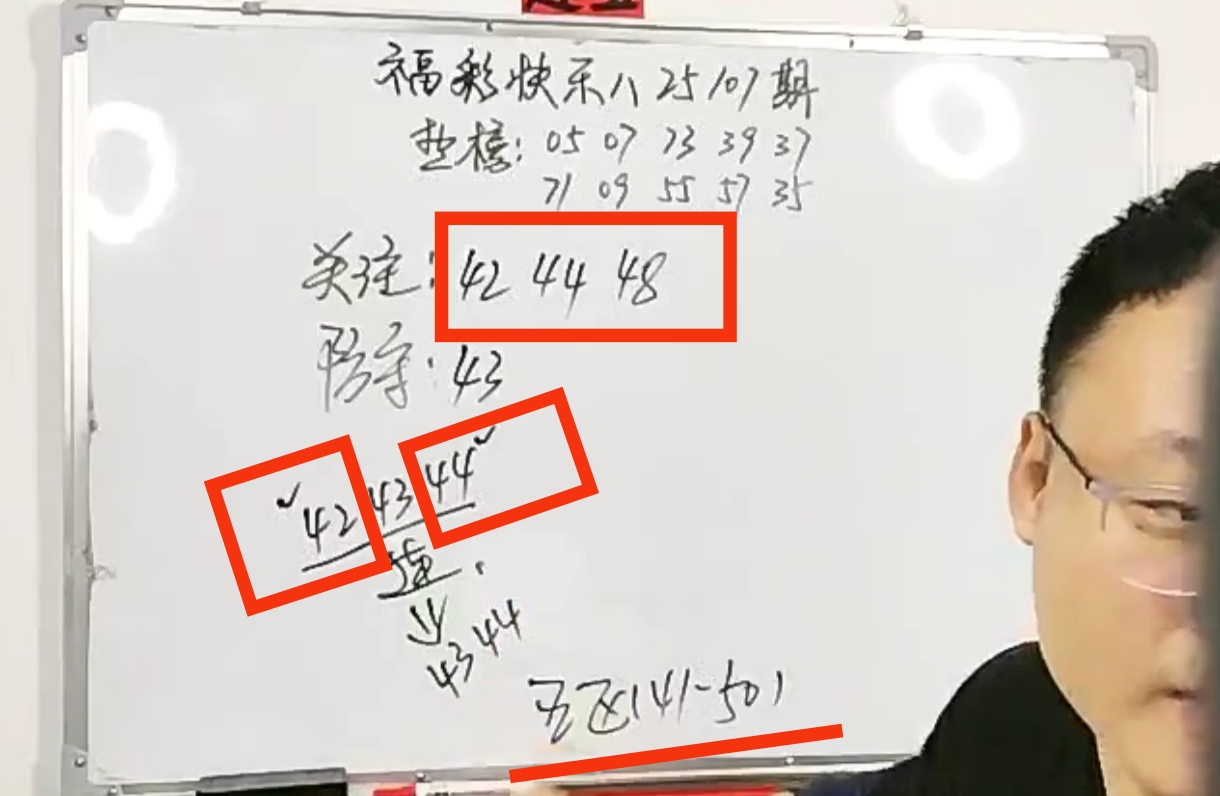 福彩快乐八25107期
垫榜：05 07 73 39 37
71 09 55 57 35
关注：42 44 48
防守：43
42 43 44
连.
43 44
五区(41-50)